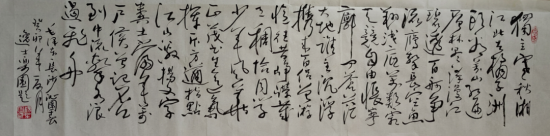 独立寒秋湘
江北去橘子洲
头看万山红遍
层林尽染漫江
碧透百舸争
流鹰击长空鱼
翔浅底万类霜
天竞自由怅寥
廓问苍茫
大地谁主沉浮
携来百侣曾游
忆往昔峥嵘岁
月稠恰同学
少年风华
正茂书生意气
挥斥方遒指点
江山激扬文字
粪土当年万
户侯曾记否
到中流击水浪
遏飞舟
毛泽东长沙沁园春
癸卯年夏月